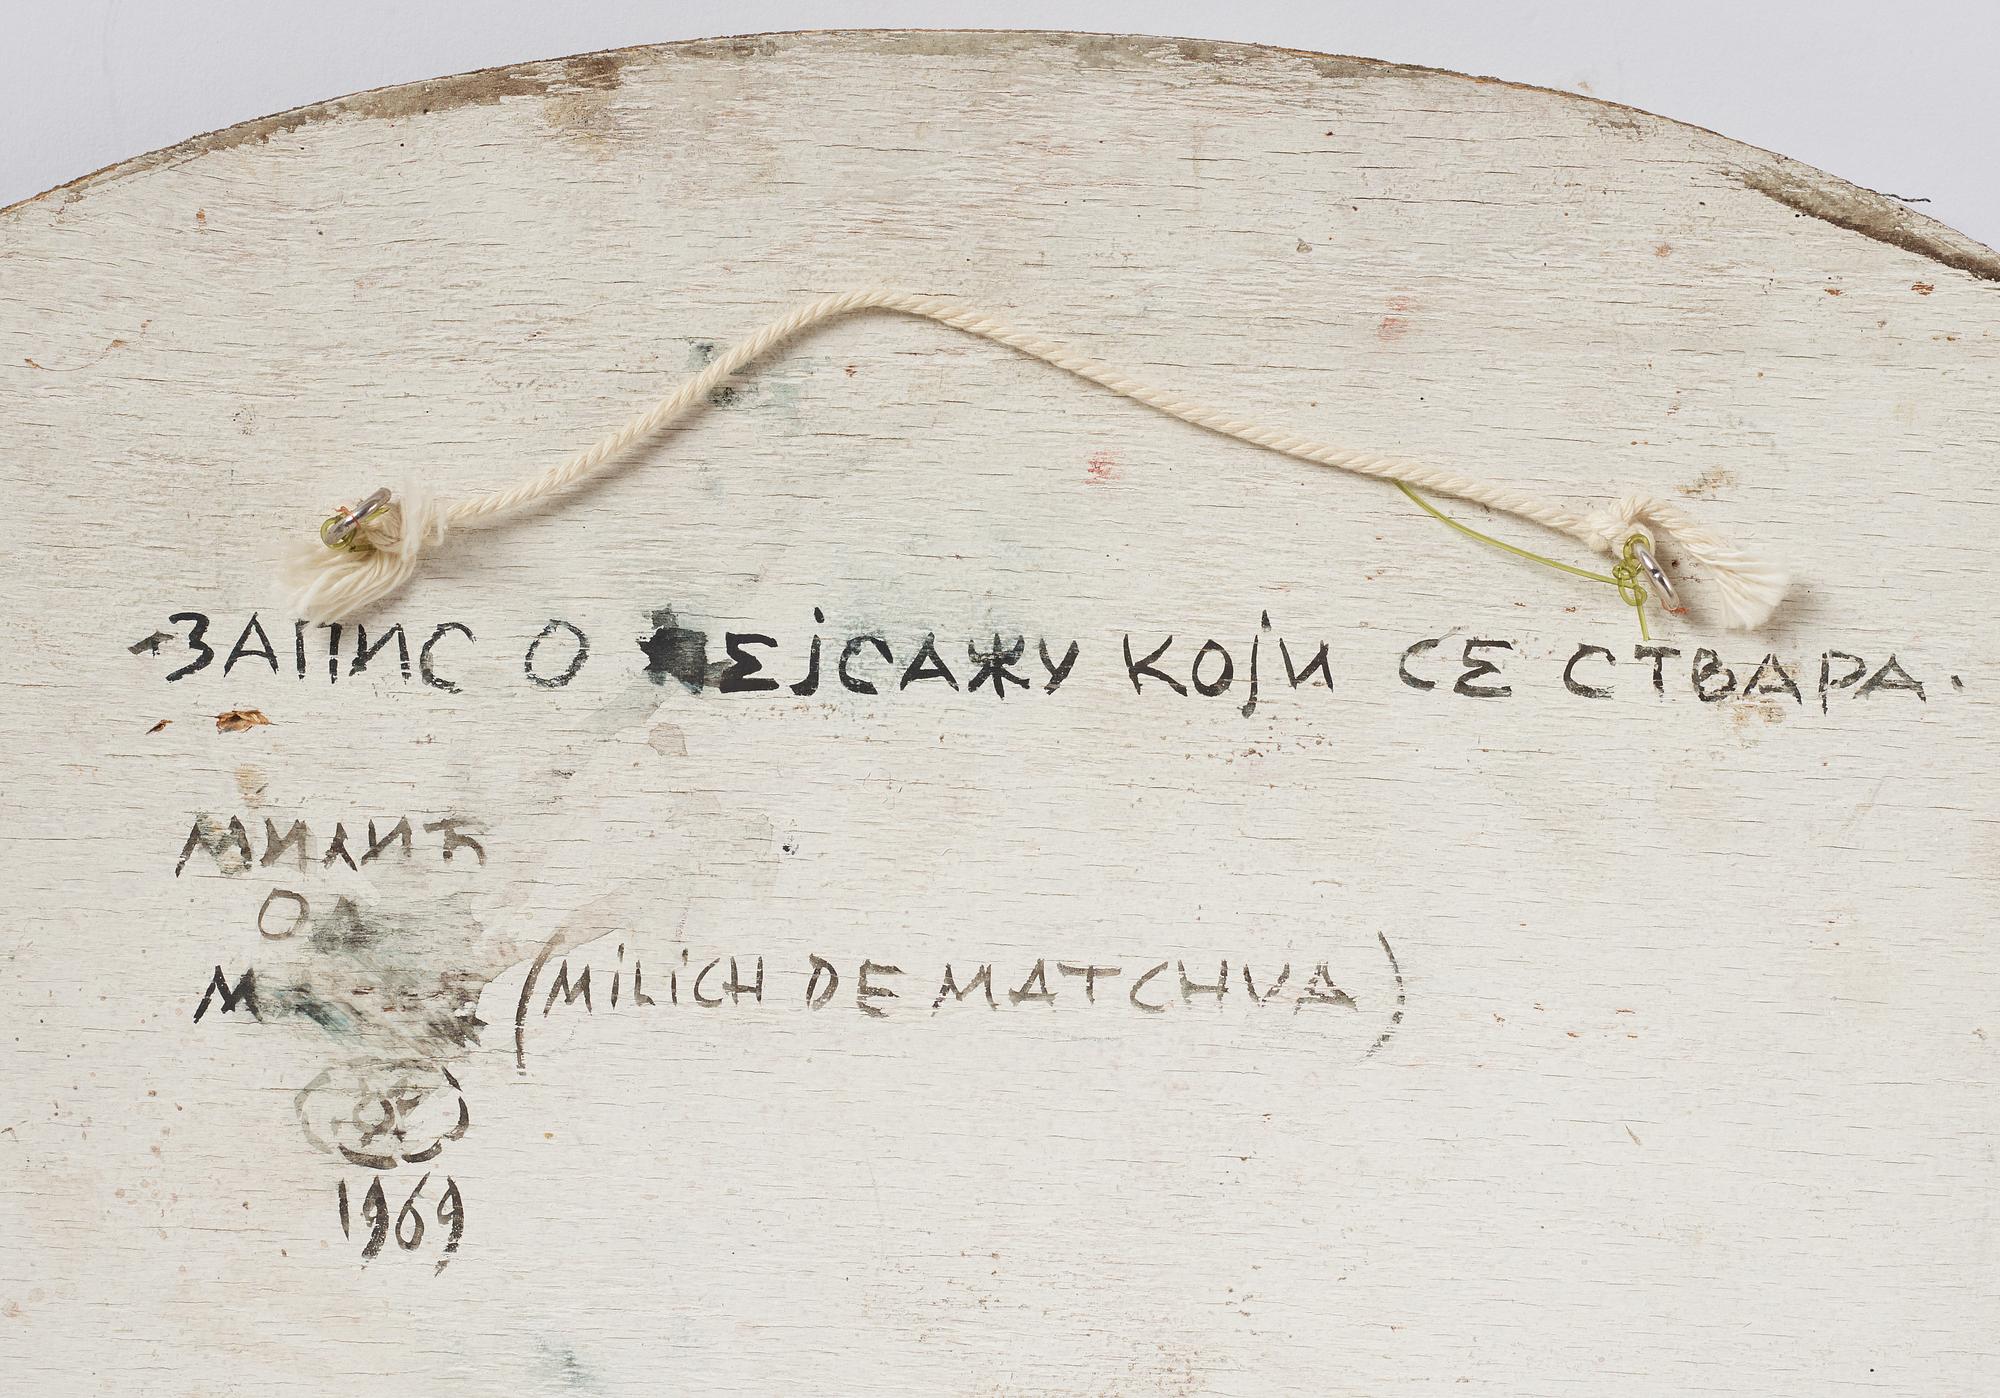 ЗАПИС О ПЕЈСАЖУ КОЈИ СЕ СТВАРА.
МИЛИЋ
ОД
(MILICH DE MATCHVA)
1969